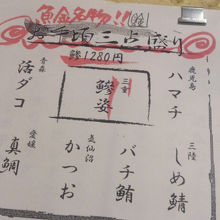 魚金名物!!
お手頃三点盛り
1280円
鹿児島
ハマチ
三陸
しめ鯖
三重
鰺姿
バチ鮪
気仙沼
かつお
青森
活ダコ
愛媛
真鯛